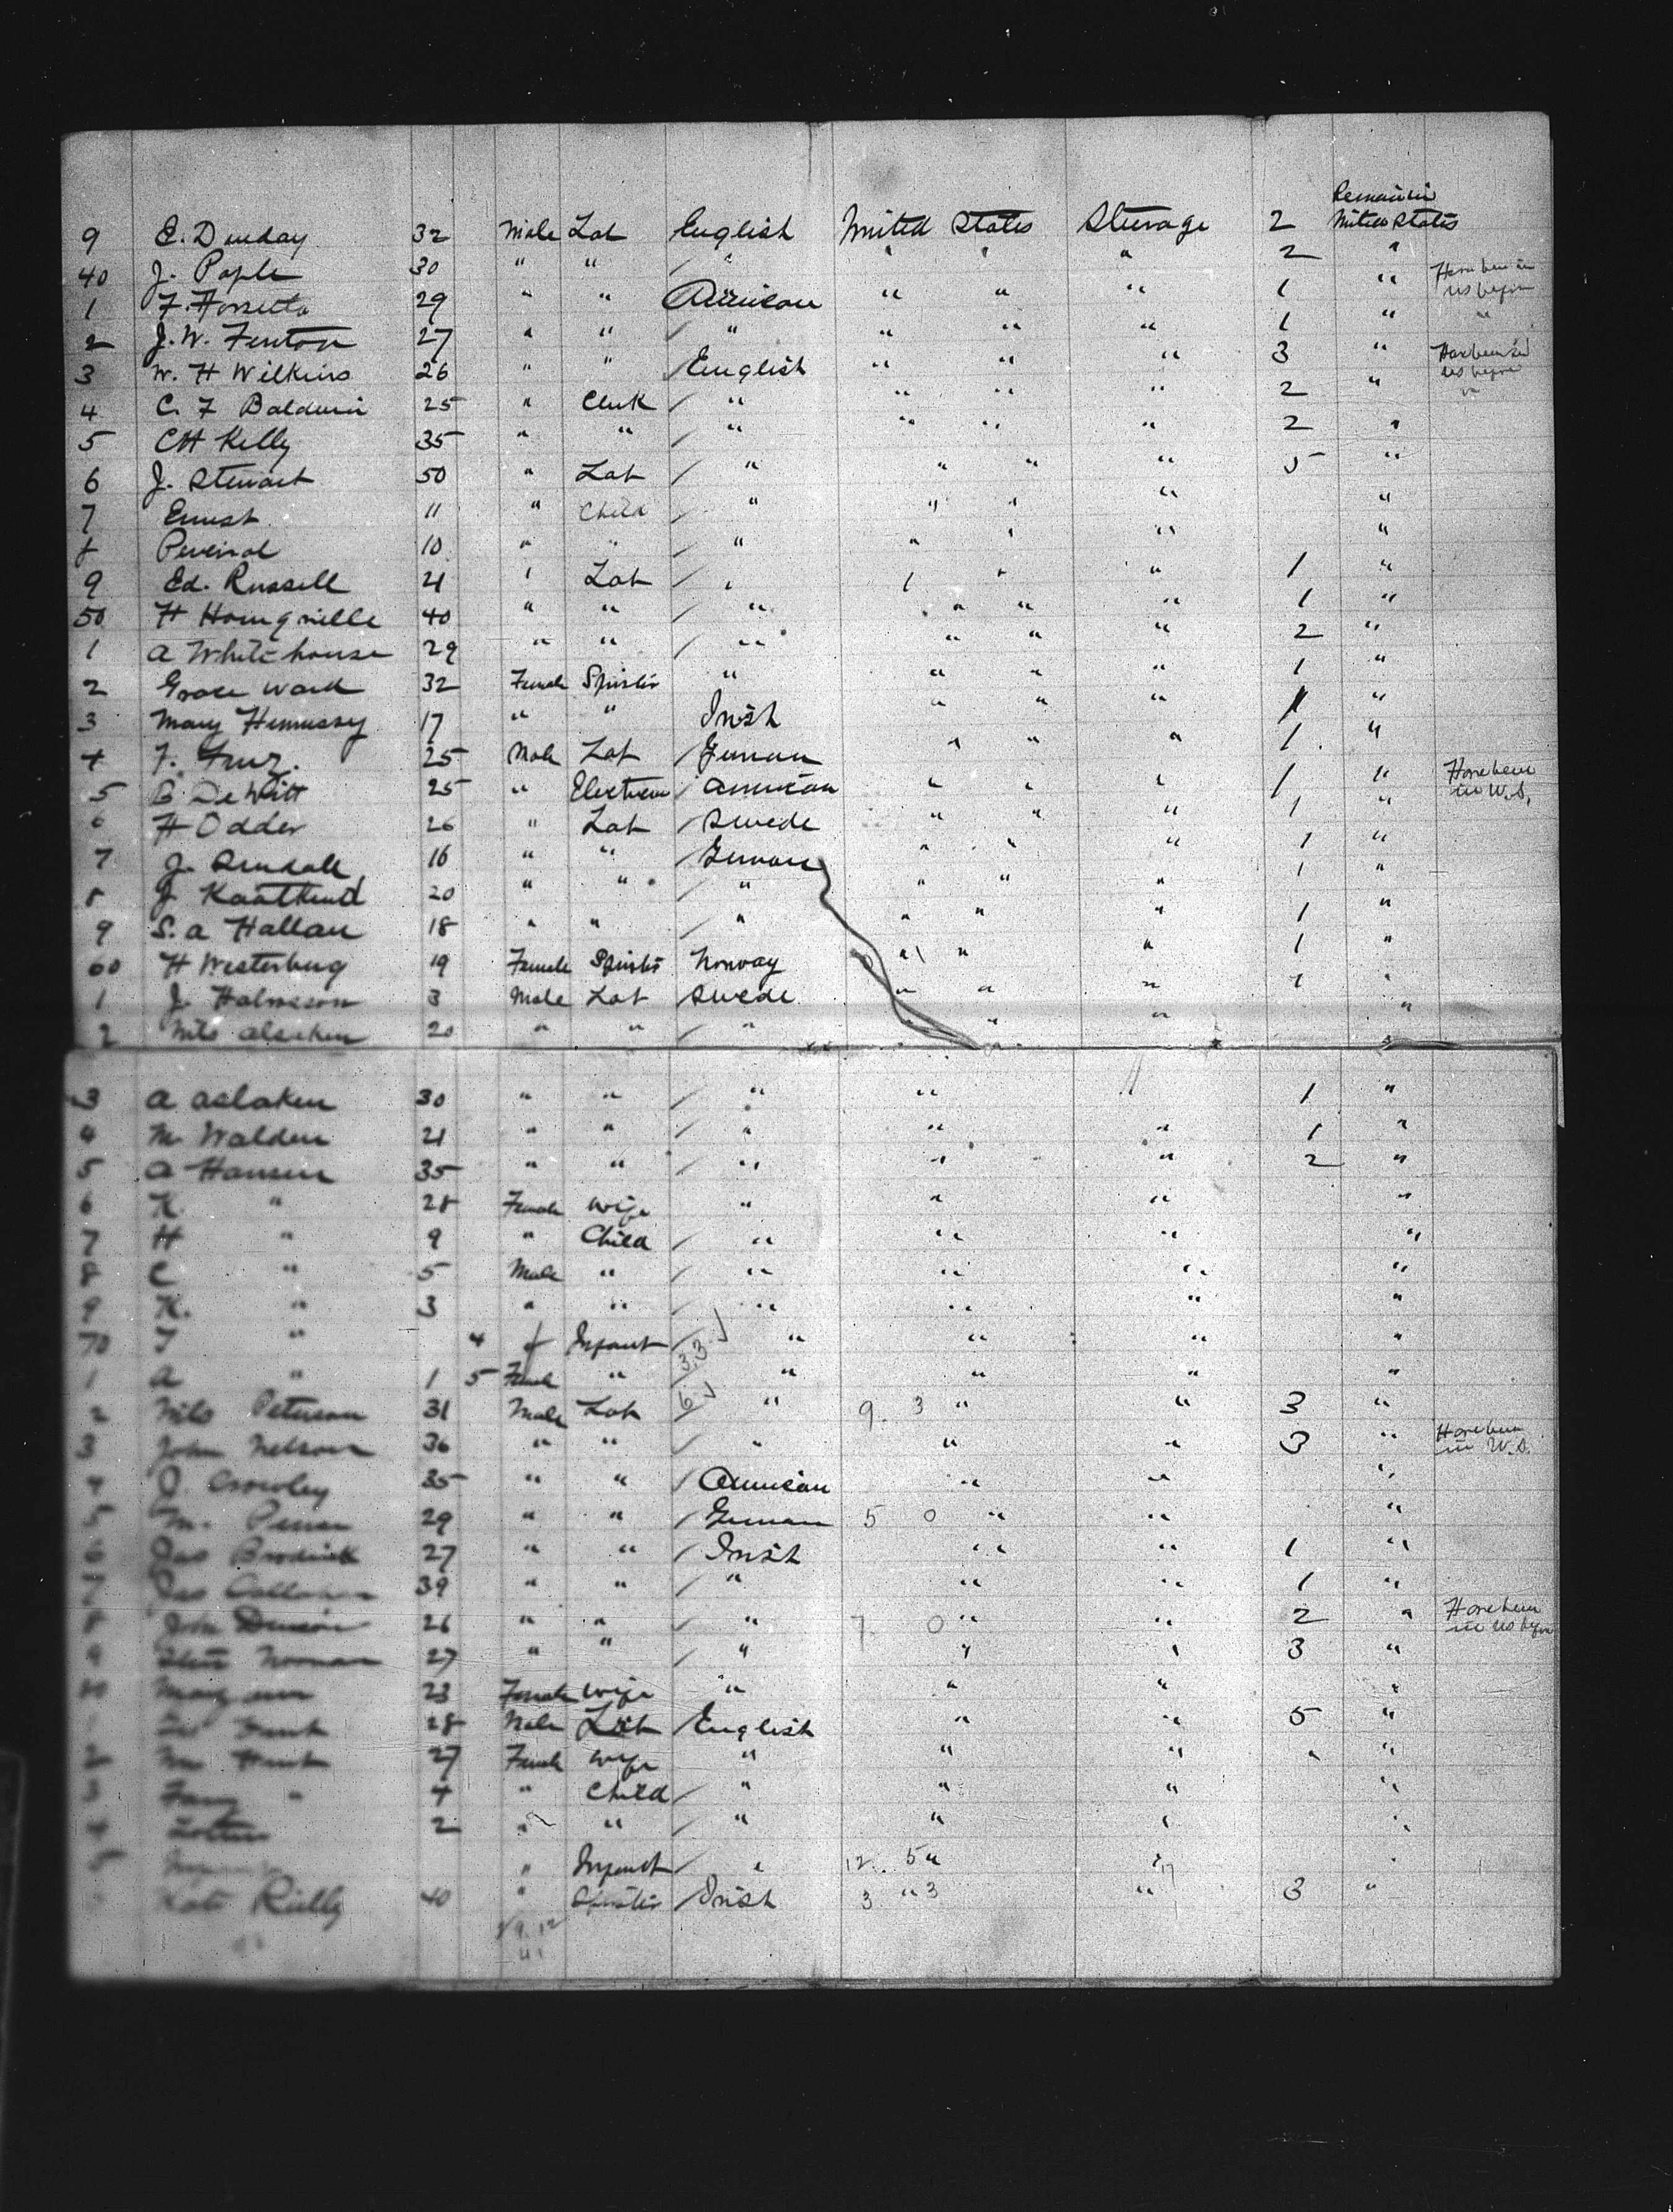 Remain in
9 E. Dunday 32 Male Lab English United States Steerage 2 United States
40 J. Pople 30 " " / " " " " 2 "
1 F. Forsetta 29 " " American " " " 1 " Have been in US before
2 J. W. Fenton 27 " " / " " " " 1 " "
3 W. H Wilkins 26 " " English " " " 3 " Have been in US before
4 C. F Baldwin 25 " Clerk / " " " " 2 " "
5 CH Kelly 35 " " / " " " " 2 "
6 J. Stewart 50 " Lab / " " " " 5 "
7 Ernest 11 " Child / " " " " "
8 Percival 10 " " / " " " " "
9 Ed. Russell 21 " Lab / " " " " 1 "
50 H 40 " " / " " " " 1 "
1 A Whitehouse 29 " " / " " " " 2 "
2 Grace Ward 32 Female Spinster " " " " 1 "
3 Mary Hennessy 17 " " Irish " " " 1 "
4 F. 25 Male Lab / German " " " 1 "
5 B De Witt 25 " Electrician / American " " " 1 " Have been in U.S.
6 H Odder 26 " Lab / Swede " " " 1 "
7 J. 16 " " / German " " " 1 "
8 J 20 " " / " " " " 1 "
9 S. A Hallan 18 " " / " " " " 1 "
60 H Westerburg 19 Female Spinster Norway " " " 1 "
1 J. 3 Male Lab Swede " " " 1 "
2 Nils 20 " " / " " " " "
3 A Aslaken 30 " " / " " " 1 "
4 M. Walden 21 " " / " " " 1 "
5 A Hansen 35 " " / " " " 2 "
6 K. " 28 Female Wife " " " "
7 H " 9 " Child / " " " "
8 C " 5 Male " / " " " "
9 K. " 3 " " / " " " "
70 T " 4 f Infant / 3.3 " " " "
1 A " 1 5 Female " " " " "
2 Nils Peterson 31 Male Lab 6 " 9. 3 " " 3 "
3 John Nelson 36 " " / " " " 3 " Have been in U.S.
4 J. Crowley 35 " " / American " " "
5 M. 29 " " / German 5 0 " " "
6 Jas Brodrick 27 " " / Irish " " 1 "
7 Jas Callahan 39 " " / " " " 1 "
8 John 26 " " / " 7 0 " " 2 " Have been in US before
9 Noonan 27 " " / " " " 3 "
80 Mary ann 23 Female Wife " " " "
Hunt 28 Male Lab / English " " 5 "
2 Hunt 27 Female Wife " " " " "
3 " 4 " Child / " " " "
4 2 " " / " " " "
5 " Infant / " 12. 5 " " "
Kate Rielly 40 " Spinster / Irish 3 " 3 " 3 "